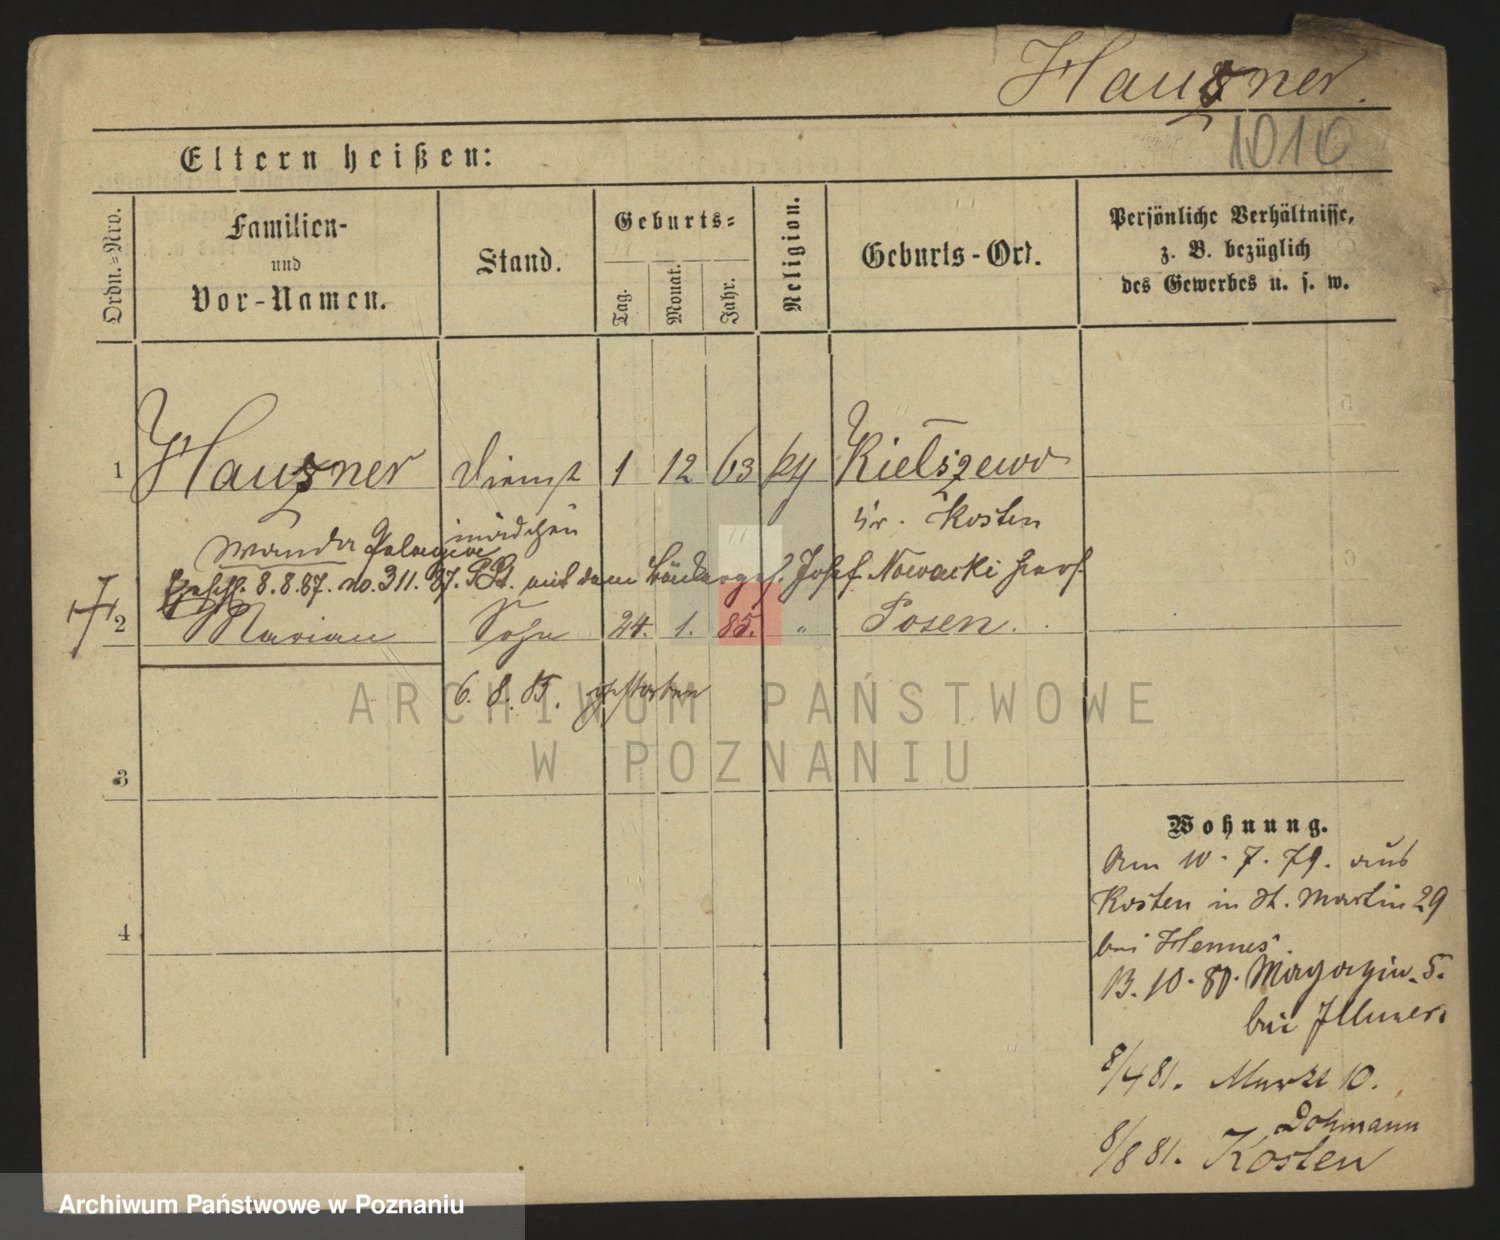 Hauszner.
1010
Eltern heißen:
Ordn.=Nro.
Familien-
und
Vor-Namen.
Stand.
Geburts=
Tag.
Monat.
Jahr.
Religion.
Geburts-Ort.
Persönliche Verhältnisse,
z. B. bezüglich
des Gewerbes u. s. w.
1 Hauszner Dienst 1 12 63 Kielszewo
mädchen Kr. Kosten
Wanda Pelagia
8.8.87. no. 311. 87. mit dem Bäckerges. Josef Nowacki
2 Marian Sohn 24. 1. 85. " Posen.
6. 8. 85. gestorben
ARCHIWUM PAŃSTWOWE
W POZNANIU
3
4
Wohnung.
Am 10. 7. 79. aus
Kosten in St. Martin 29
bei Hennes.
13. 10. 80. Magazin. 5.
bei Illmer.
8/4 81. Markt 10.
Dohmann
8/8 81. Kosten
Archiwum Państwowe w Poznaniu